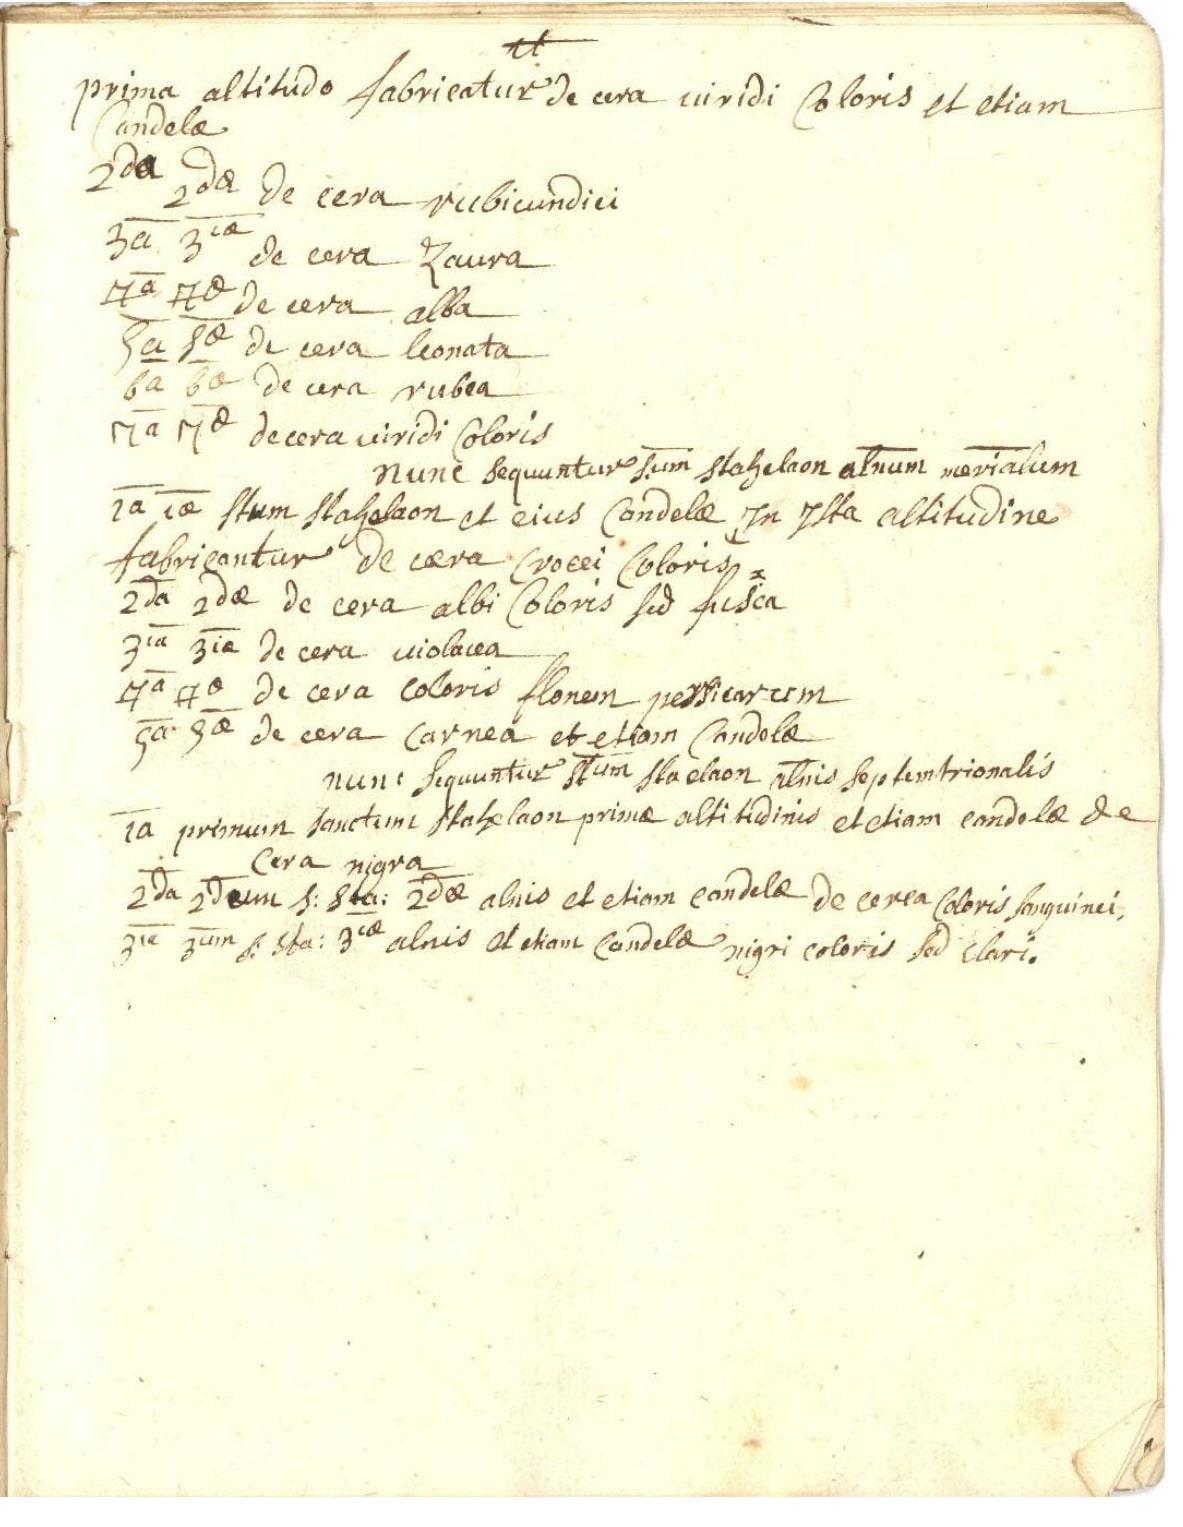 et
prima altitudo fabricatur de cera uiridi Coloris et etiam
Candelæ
2da 2dæ de cera rubicundiei
3a 3iæ de cera Zaura
4a 4æ de cera alba
5a 5æ de cera leonata
6a 6æ de cera rubea
7a 7æ de cera uiridi Coloris
nunc sequuntur s:um stahelaon atnum merialum
1a 1æ stum stahelaon et eius Candelæ In Ista altitudine
fabricantur de cæra Crocei Coloris
2da 2dæ de cera albi Coloris sed fusca
3ia 3iæ de cera uiolacea
4a 4æ de cera coloris florem persicarum
5a 5æ de cera Carnea et etiam Candelæ
nunc sequuntur stum staelaon atnis septemtrionalis
1a primum sanctum stahelaon primæ altitidinis et etiam candelæ de
Cera nigra
2da 2dum s: sta: 2dæ alnis et etiam candelæ de cerea Coloris sanguinei,
3ia 3ium s: sta: 3iæ alnis et etiam Candelæ nigri coloris sed clari.